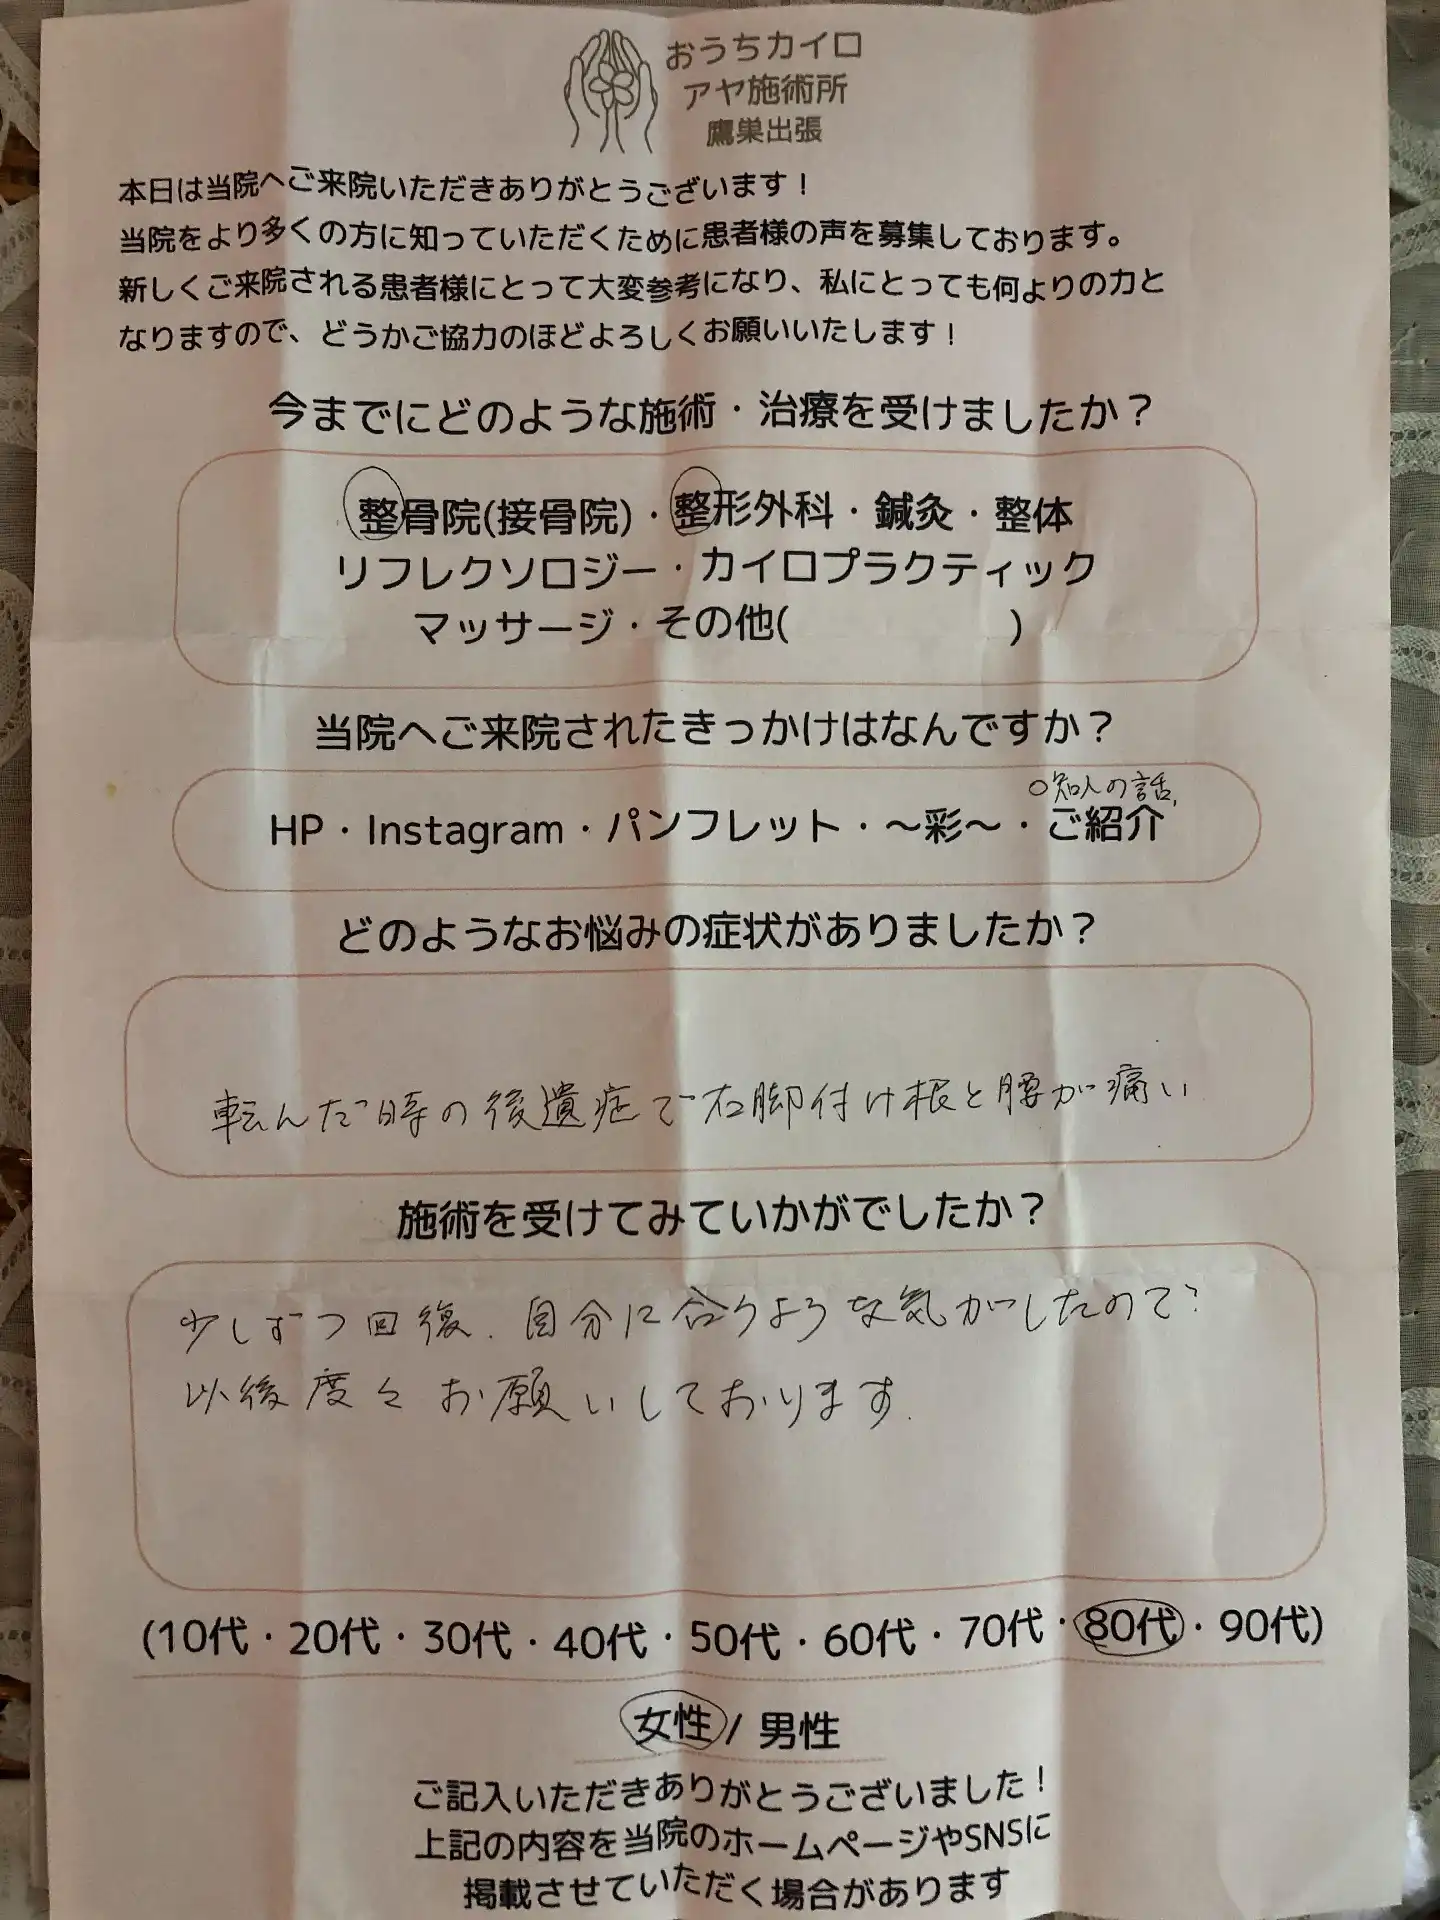 おうちカイロ
アヤ施術所
鷹巣出張
本日は当院へご来院いただきありがとうございます！
当院をより多くの方に知っていただくために患者様の声を募集しております。
新しくご来院される患者様にとって大変参考になり、私にとっても何よりの力と
なりますので、どうかご協力のほどよろしくお願いいたします！
今までにどのような施術・治療を受けましたか？
整骨院(接骨院)・整形外科・鍼灸・整体
リフレクソロジー・カイロプラクティック
マッサージ・その他( )
当院へご来院されたきっかけはなんですか？
○知人の話,
HP・Instagram・パンフレット・～彩～・ご紹介
どのようなお悩みの症状がありましたか？
転んだ時の後遺症で右脚付け根と腰が痛い
施術を受けてみていかがでしたか？
少しずつ回復.自分に合うような気がしたので
以後度々お願いしております.
(10代・20代・30代・40代・50代・60代・70代・80代・90代)
女性/男性
ご記入いただきありがとうございました！
上記の内容を当院のホームページやSNSに
掲載させていただく場合があります